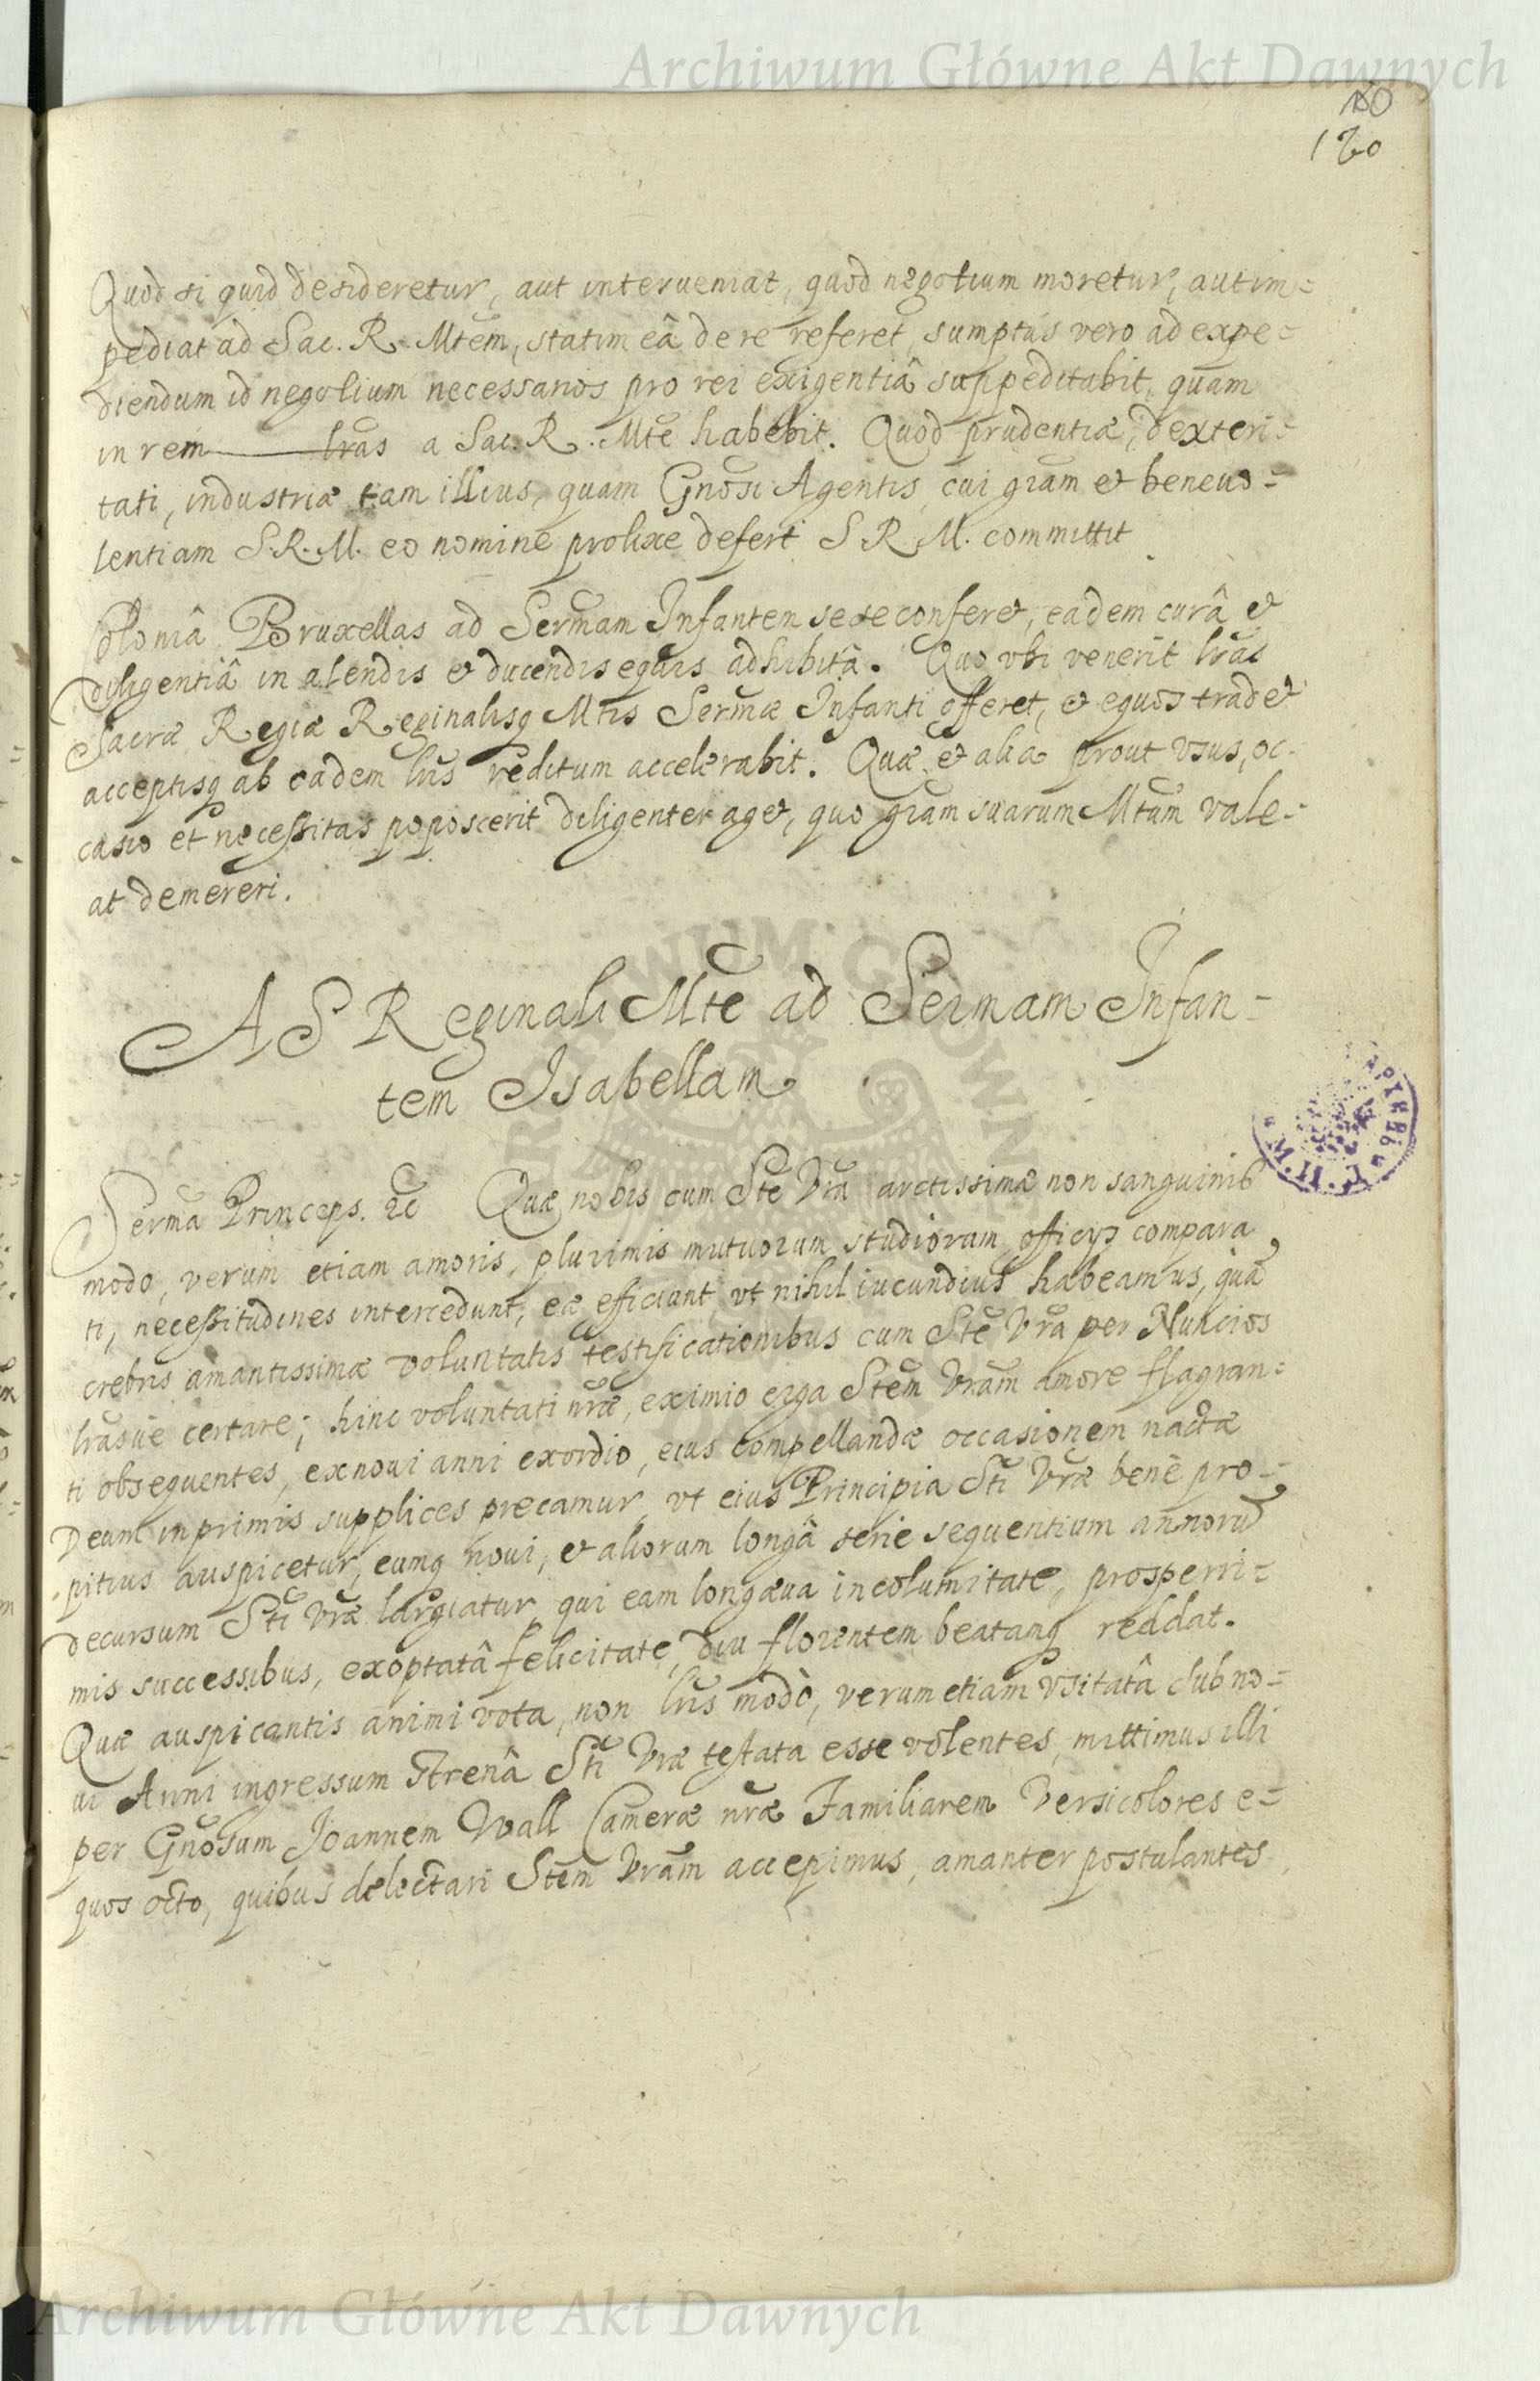 Archiwum Główne Akt Dawnych
150
120
Quod si quid desideretur, aut interueniat, quod negotium moretur, aut im=
pediat ad Sac. R. Mtem, statim eâ de re referet, sumptus vero ad expe=
diendum id negotium necessarios pro rei exigentiâ suppeditabit, quam
in rem lras a Sac. R. Mte habebit. Quod prudentiæ, dexteri=
tati, industriæ tam illius, quam Gnosi Agentis, cui gram et beneuo=
lentiam S.R.M. eo nomine prolixe defert S R M. committit
Coloniâ Bruxellas ad Sermam Infantem sese conferet, eadem curâ et
diligentiâ in alendis et ducendis equis adhibitâ. Quo vbi venerit lras
Sacræ Regiæ Reginalisq Mtis Sermæ Infanti offeret, et equos tradet
acceptisq ab eadem lris reditum accelerabit. Quæ et alia prout vsus, oc=
casio et necessitas poposcerit diligenter aget, quo gram suarum Mtum vale=
at demereri.
A S Reginali Mte ad Sermam Infan=
tem Isabellam
Serma Princeps. &c Quæ nobis cum Ste Vra arctissimæ non sanguinis
modo, verum etiam amoris, plurimis mutuorum studiorum officys compara
ti, necessitudines intercedunt, eæ efficiunt, vt nihil iucundius habeamus, quà
crebris amantissimæ voluntatis testificationibus cum Ste Vra per Nuncios
lrasue certare; hinc voluntati nræ, eximio erga Stem Vram amore flagran=
ti obsequentes, ex noui anni exordio, eius compellandæ occasionem nactæ
Deum inprimis supplices precamur, vt eius Principia Sti Vræ benè pro=
pitius auspicetur, eumq noui, et aliorum longâ serie sequentium annorū
decursum Sti Vræ largiatur, qui eam longæua incolumitate, prosperri=
mis successibus, exoptatâ felicitate, diu florentem beatamq reddat.
Quæ auspicantis animi vota, non lris modò, verum etiam vsitatâ sub no=
ui Anni ingressum Strenâ Sti Vræ testata esse volentes, mittimus illi
per Gnosum Joannem Wall Cameræ nræ Familiarem Versicolores e=
quos octo, quibus delectari Stem Vram accepimus, amanter postulantes
Archiwum Główne Akt Dawnych